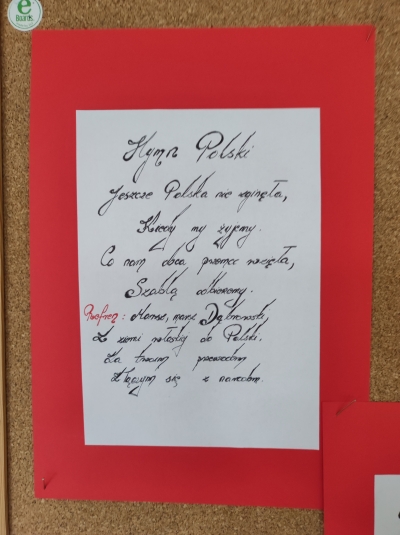 e
Boards
Hymn Polski
Jeszcze Polska nie zginęła,
Kiedy my żyjemy.
Co nam obca przemoc wzięła,
Szablą odbierzemy.
Refren: Marsz, marsz Dąbrowski,
Z ziemi włoskiej do Polski.
Za twoim przewodem
Złączym się z narodem.